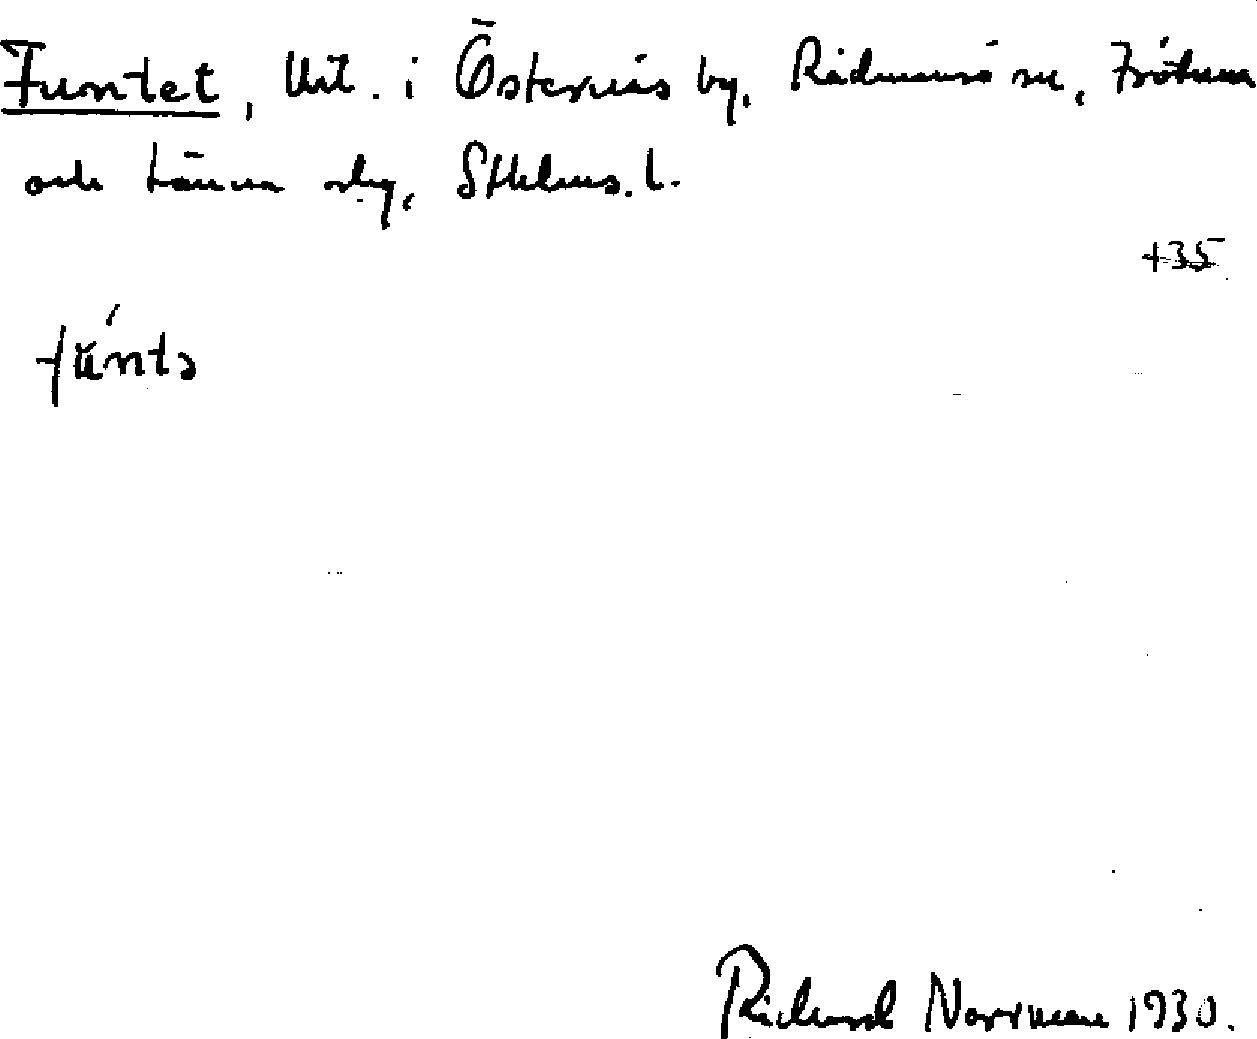 Funtet, lht. i Östernäs by, Rådmansö sn, Frötuna
och Länna slg, Sthlms. l.
+35
fúntɔ
Richard Norrman 1930.